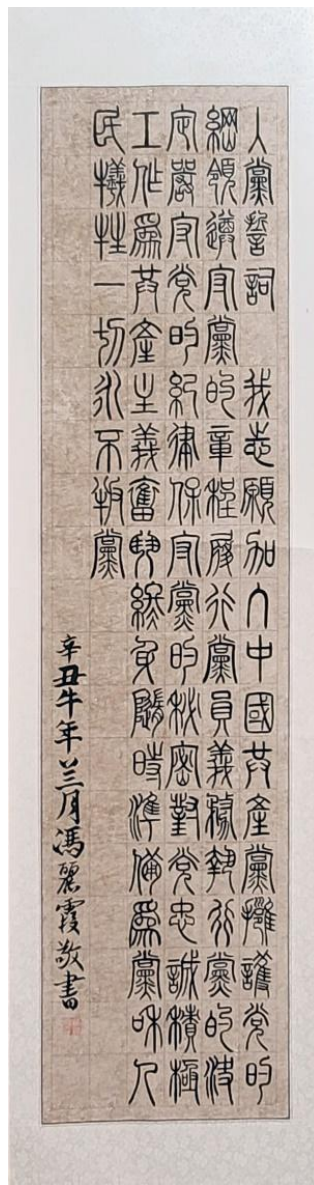 入黨誓詞　我志願加入中國共產黨擁護党的
綱領遵守黨的章程履行黨員義務執行党的決
定嚴守党的紀律保守黨的秘密對党忠誠積極
工作爲共產主義奮鬥終身隨時準備爲黨和人
民犧牲一切永不叛黨
辛丑牛年兰月馮麗霞敬書